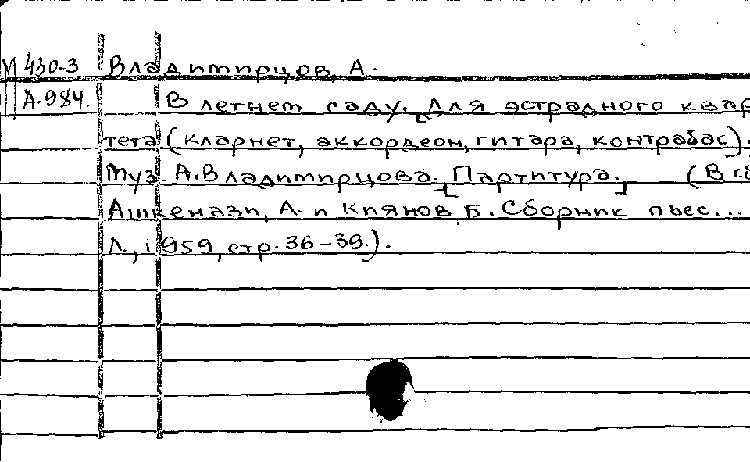 М 430-3 Владимирцов, А.
А-984. В летнем саду. Для эстрадного квар
тета (кларнет, аккордеон, гитара, контрабас).
Муз А. Владимирцова. [Партитура.] (В кн
Ашкенази, А. и Киянов Б. Сборник пьес...
Л., 1959, стр. 36-39.).